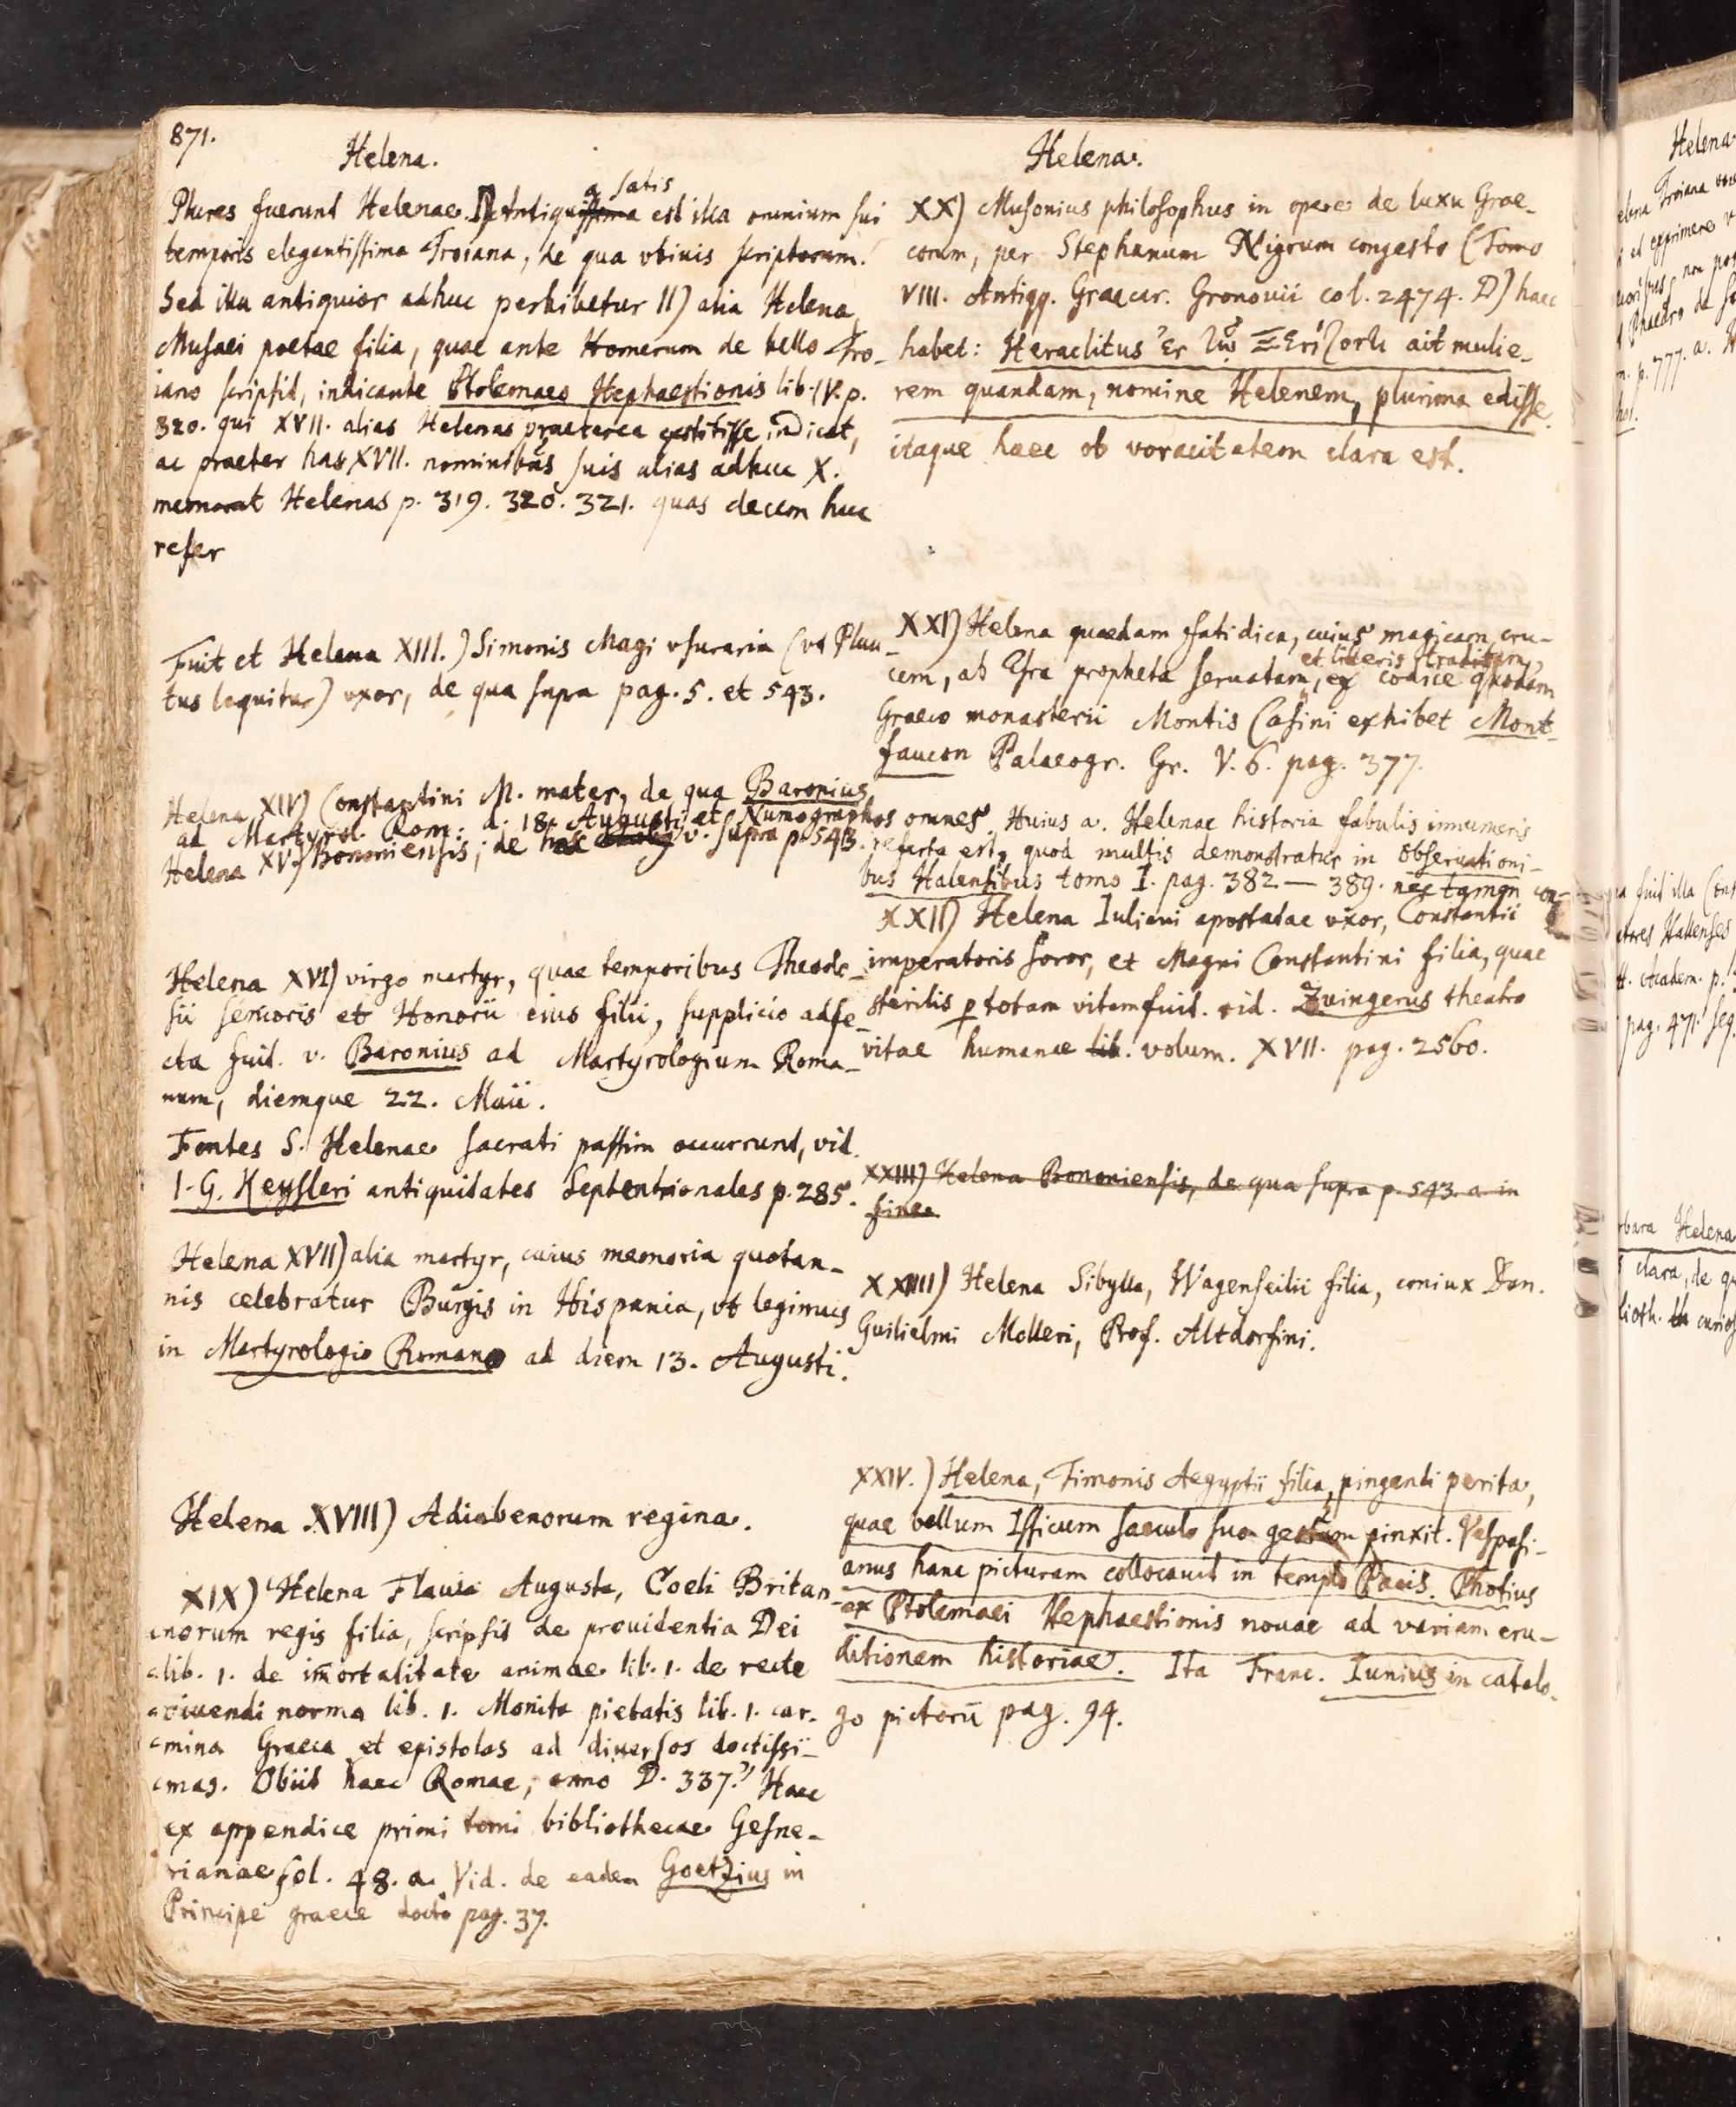 871.
Helena.
Plures fuerunt Helenae. I) Antiqua satis est illa omnium sui
temporis elegantissima Troiana, de qua vbiuis scriptorum.
Sed illa antiquior adhuc perhibetur II) alia Helena,
Musaei poetae filia, quae ante Homerum de bello Tro-
iano scripsit, indicante Ptolemaeo Hephaestionis lib. IV. p.
320. qui XVII. alias Helenas praeterea exstitisse indicat,
ac praeter has XVII. nominibus suis alias adhuc X.
memorat Helenas p. 319. 320. 321. quas decem huc
refer
Fuit et Helena XIII.) Simonis Magi vsuraria (vt Plau-
tus loquitur) vxor, de qua supra pag. 5. et 543.
Helena XIV) Constantini M. mater, de qua Baronius
ad Martyrol. Rom. d. 18. Augusti et Numographos omnes. Huius a. Helenae historia fabulis innumeris
referta est, quod multis demonstratur in Obseruationi-
bus Halensibus tomo I. pag. 382 — 389. nec tamen con-
Helena XV) Bononiensis; de hac v. supra p. 543.
Helena XVI) virgo martyr, quae temporibus Theodo-
sii senioris et Honorii eius filii, supplicio adfe-
cta fuit. v. Baronius ad Martyrologium Roma-
num, diemque 22. Maii.
Fontes S. Helenae sacrati passim occurrunt, vid.
I. G. Keysleri antiquitates Septentrionales p. 285.
Helena XVII) alia martyr, cuius memoria quotan-
nis celebratur Burgis in Hispania, vt legimus
in Martyrologio Romano ad diem 13. Augusti.
Helena XVIII) Adiabenorum regina.
XIX) "Helena Flauia Augusta, Coeli Britan-
"norum regis filia, scripsit de prouidentia Dei
"lib. 1. de im̄ortalitate animae lib. 1. de recte
"viuendi norma lib. 1. Monita pietatis lib. 1. car-
"mina Graeca et epistolas ad diuersos doctissi-
"mas. Obiit haec Romae, anno D. 337." Haec
ex appendice primi tomi bibliothecae Gesne-
rianae fol. 48. a. Vid. de eadem Goetzius in
Principe graece docto pag. 37.
Helena.
XX) Musonius philosophus in opere de luxu Grae-
corum, per Stephanum Nigrum congesto (Tomo
VIII. Antiqq. Graecar. Gronouii col. 2474. D) haec
habet: Heraclitus ait mulie-
rem quandam, nomine Helenem, plurima edisse.
itaque haec ob voracitatem clara est.
XXI) Helena quaedam fatidica, cuius magicam cru-
cem, ab Esra propheta seruatam, et litteris traditam, ex codice quodam
Graeco monasterii Montis Casini exhibet Mont-
faucon Palaeogr. Gr. V. 6. pag. 377.
XXII) Helena Iuliani apostatae vxor, Constantii
imperatoris soror, et Magni Constantini filia, quae
sterilis p totam vitam fuit. vid. Zvingerus theatro
vitae humanae lib. volum. XVII. pag. 2560.
XXIII) Helena Bononiensis, de qua supra p. 543. a in
fine.
XXIII) Helena Sibylla, Wagenseilii filia, coniux Dan.
Guilielmi Molleri, Prof. Altdorfini.
XXIV.) Helena, Timonis Aegyptii filia, pingendi perita,
quae bellum Issicum saeculo suo gestum pinxit. Vespasi-
anus hanc picturam collocauit in templo Pacis. Photius
ex Ptolemaei Hephaestionis nouae ad variam eru-
ditionem historiae. Ita Franc. Iunius in catalo-
go pictorū pag. 94.
Helena